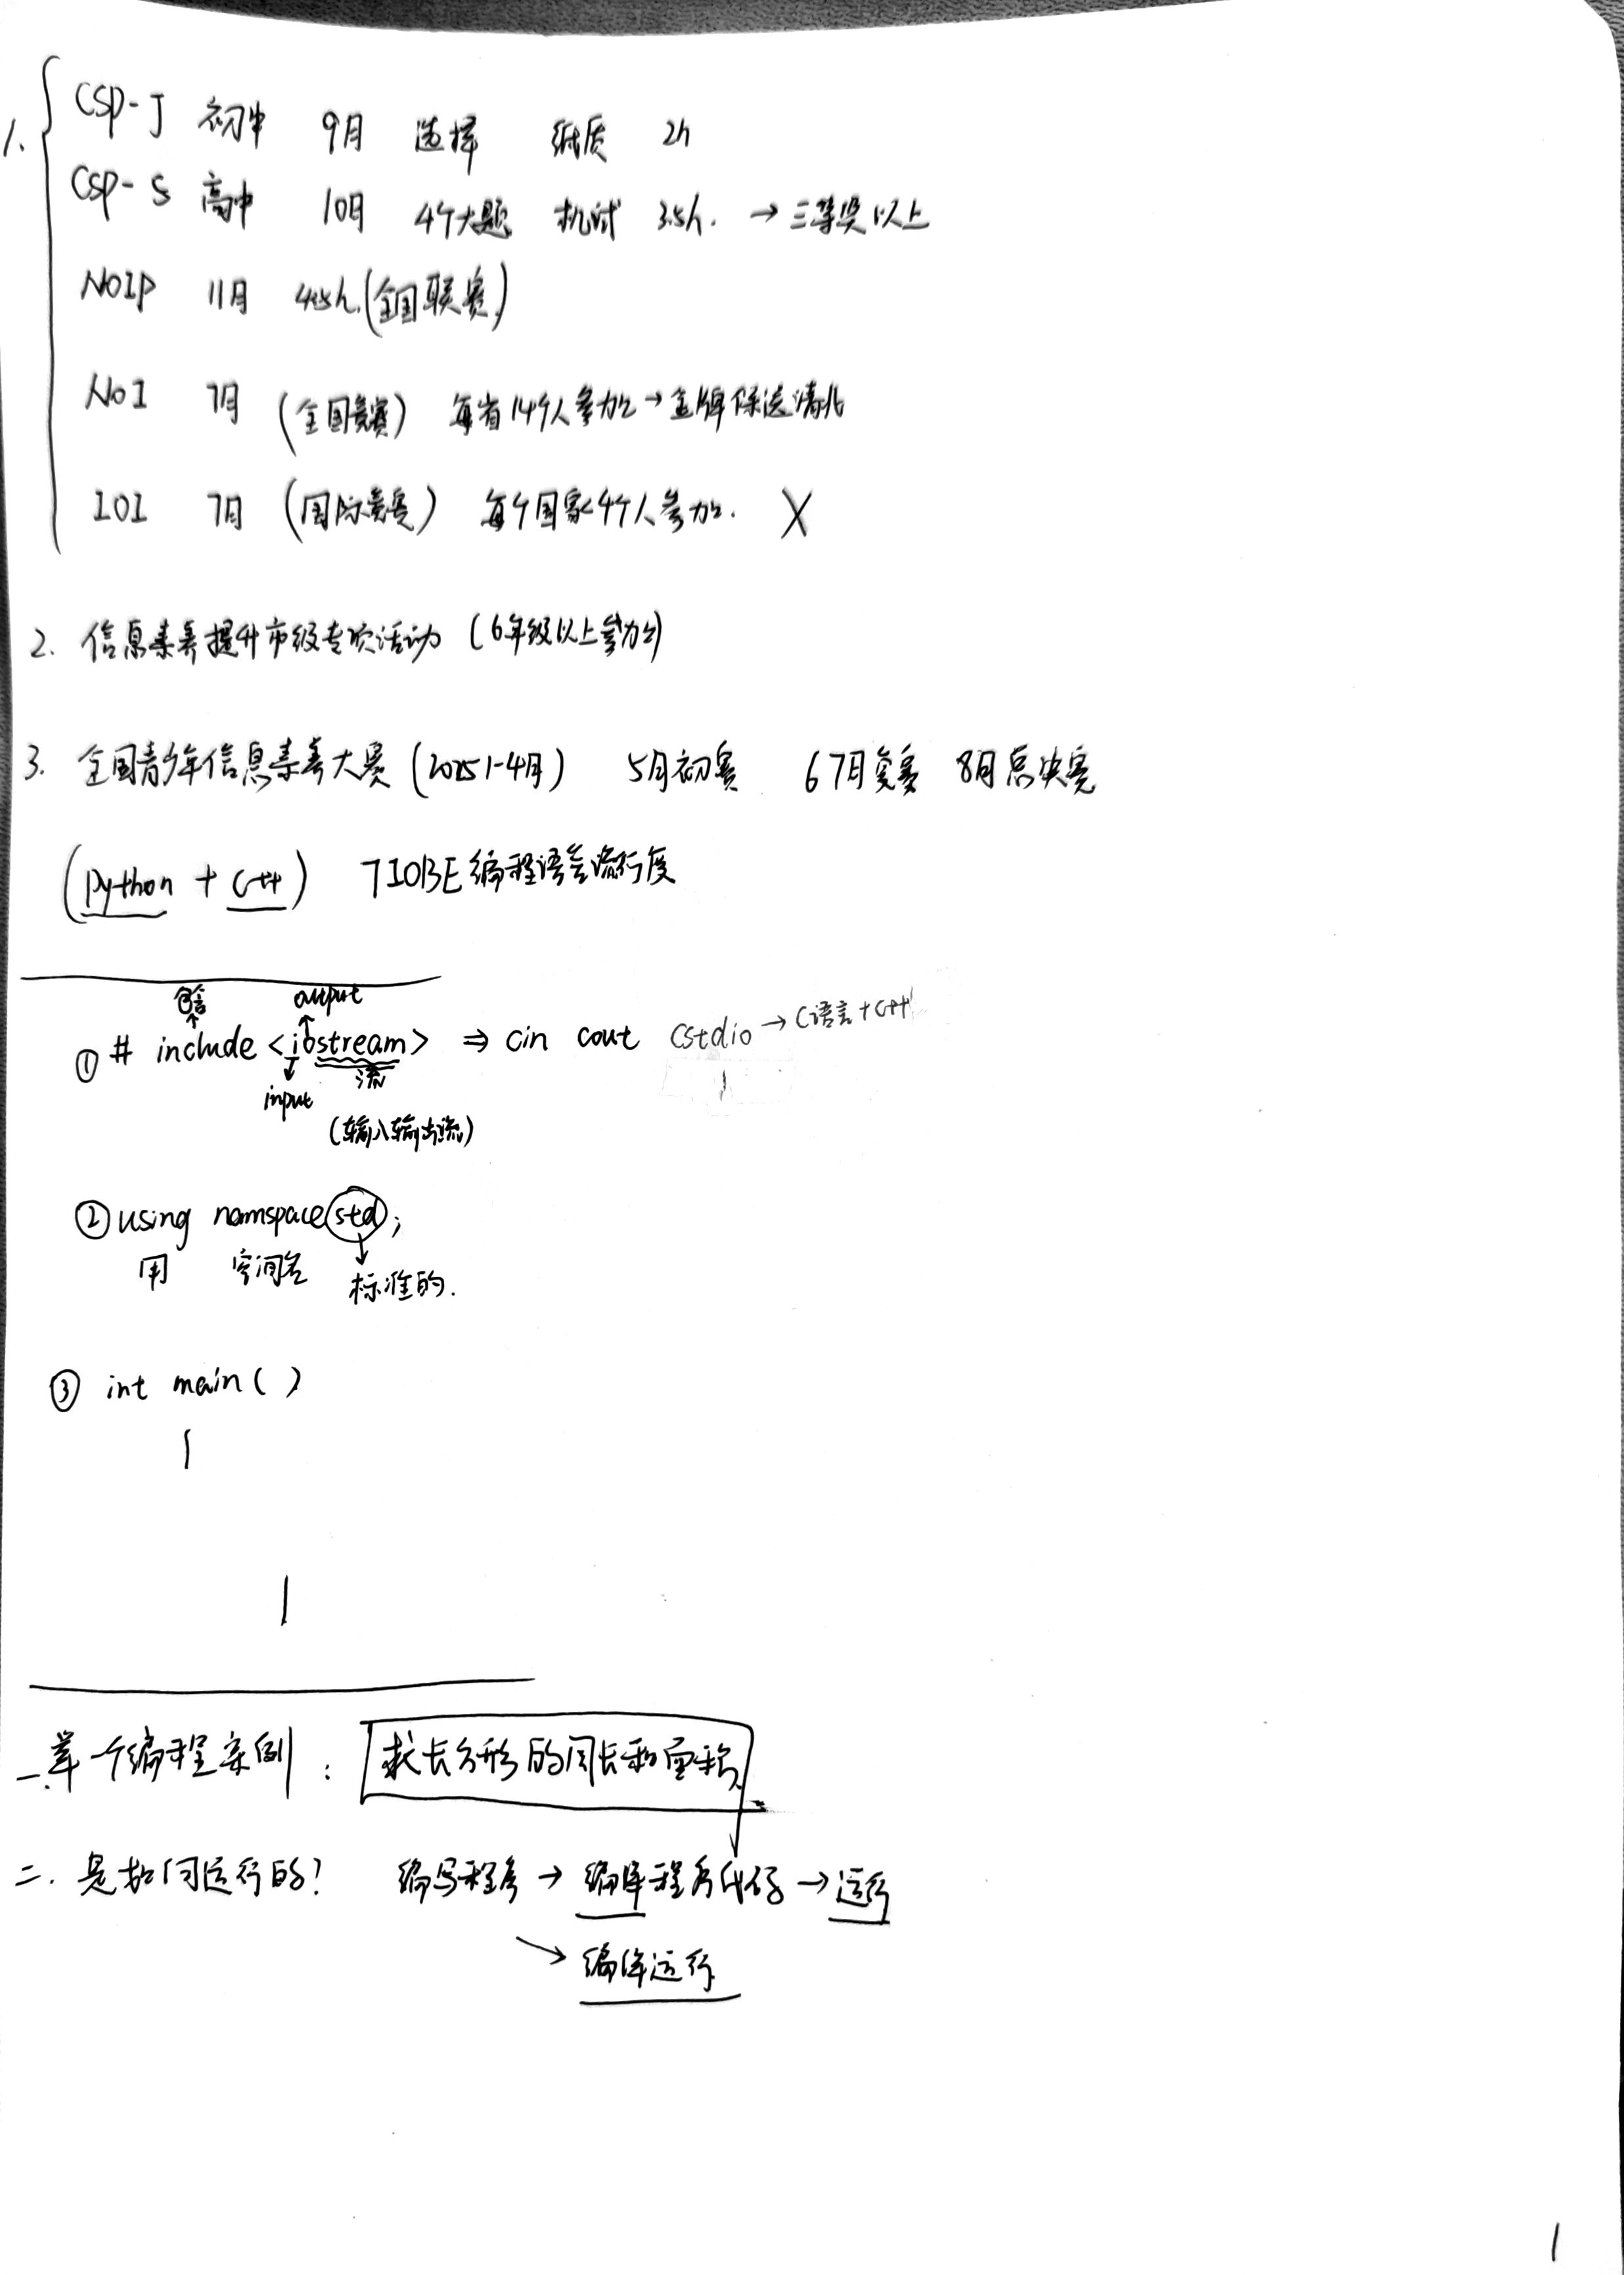 1.
CSP-J 初中 9月 选择 纸质 2h
CSP-S 高中 10月 4个大题 机试 3.5h. → 三等奖以上
NOIP 11月 4.5h.(全国联赛)
NOI 7月 (全国竞赛) 每省14个人参加→金牌保送清北
IOI 7月 (国际竞赛) 每个国家4个人参加. X
2. 信息素养提升市级专项活动 (6年级以上参加)
3. 全国青少年信息素养大赛 (2025 1-4月) 5月初赛 6 7月复赛 8月总决赛
(python + C++) TIOBE编程语言流行度
包含 output
① # include <iostream> ⇒ cin cout cstdio → C语言+C++
input 流
(输入输出流)
② using namspace std;
用 空间名 标准的.
③ int main ( )
一. 举一个编程案例 : 求长方形的周长和面积
二. 是如何运行的? 编写程序 → 编译程序代码 → 运行
→ 编译运行
1